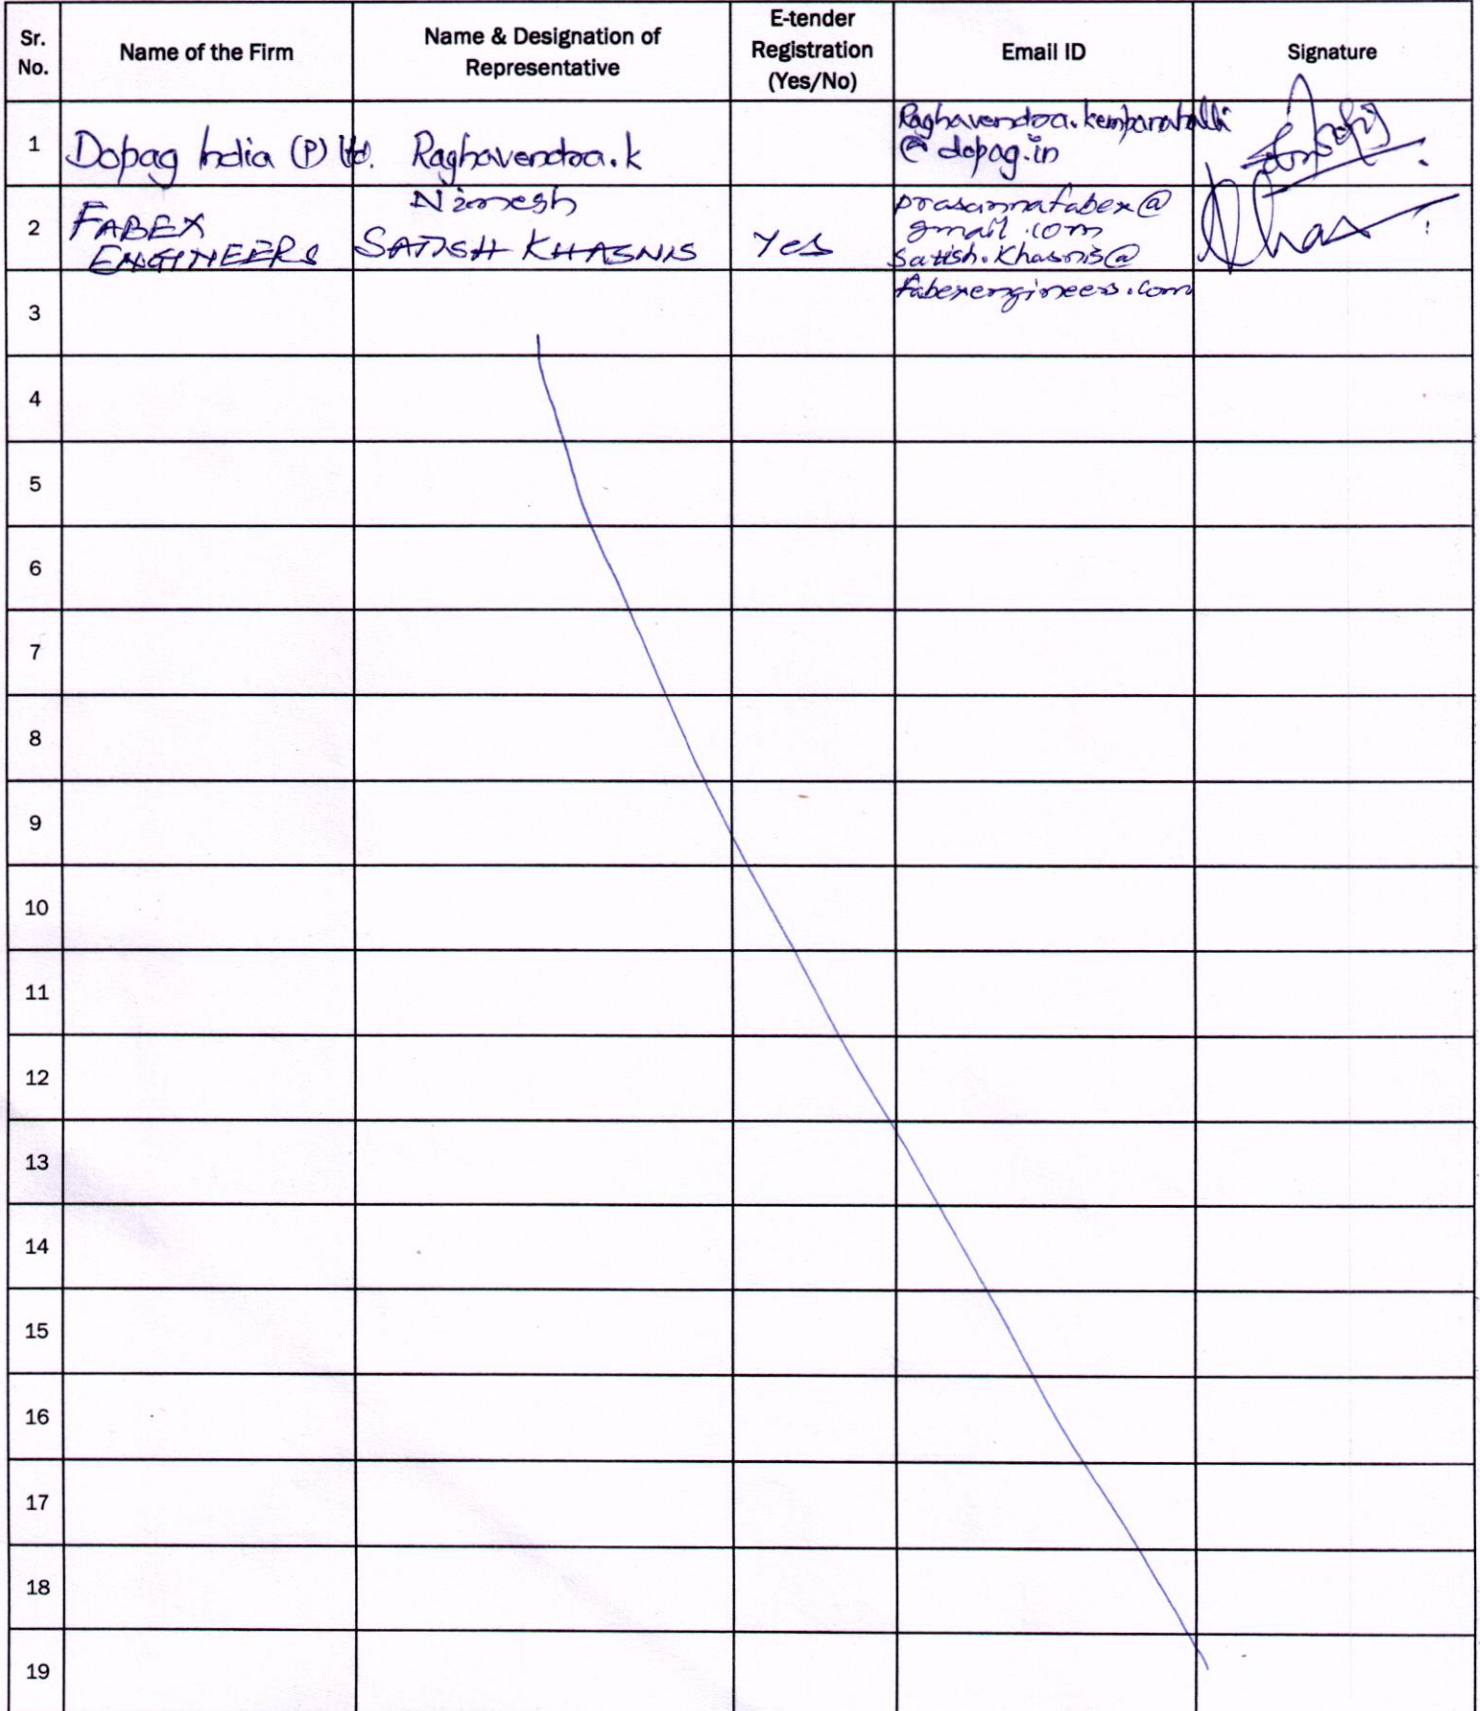 Sr. No. Name of the Firm Name & Designation of Representative E-tender Registration (Yes/No) Email ID Signature
1 Dopag India (P) ltd. Raghavendra.k Raghavendra.kemparahalli
@dopag.in
Nimesh
2 FABEX ENGINEERS SATISH KHASNIS Yes prasannafabex@
gmail.com
Satish.Khasnis@
fabexengineers.com
3
4
5
6
7
8
9
10
11
12
13
14
15
16
17
18
19